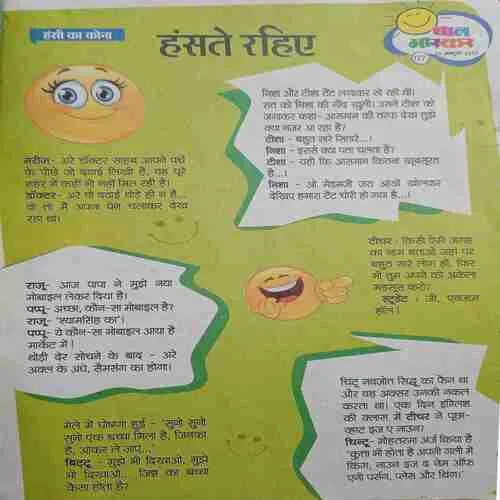 हंसी का कोना
हंसते रहिए
बाल
भास्कर
निशा और टीशा टेंट लगाकर सो रही थीं।
रात को निशा की नींद खुली। उसने टीशा को
जगाकर कहा- आसमान की तरफ देखो तुम्हें
क्या नजर आ रहा है?
टीशा - बहुत सारे सितारे...!
निशा - इससे क्या पता चलता है?
टीशा - यही कि आसमान कितना खूबसूरत
है...!
निशा - ओ मैडमजी जरा आंखें खोलकर
देखिए हमारा टेंट चोरी हो गया है...!
मरीज- अरे डॉक्टर साहब आपने पर्चे
के पीछे जो दवाई लिखी है, वह पूरे
शहर में कहीं भी नहीं मिल रही है।
डॉक्टर- अरे वो दवाई थोड़े ही न है...
वो तो मैं अपना पेन चलाकर देख
रहा था।
टीचर- किसी ऐसी जगह
का नाम बताओ जहां पर
बहुत सारे लोग हों, फिर
भी तुम अपने को अकेला
महसूस करो?
स्टूडेंट : जी, एग्जाम
हॉल!
राजू- आज पापा ने मुझे नया
मोबाइल लेकर दिया है।
पप्पू- अच्छा, कौन-सा मोबाइल है?
राजू- 'श्यामसिंह का'।
पप्पू- ये कौन-सा मोबाइल आया है
मार्केट में!
थोड़ी देर सोचने के बाद - अरे
अक्ल के अंधे, सैमसंग का होगा।
चिंटू नवजोत सिद्धू का फैन था
और वह अक्सर उनकी नकल
करता था। एक दिन इंग्लिश
की क्लास में टीचर ने पूछा-
व्हाट इज ए नाउन?
चिन्टू- मोहतरमा अर्ज किया है
'कुत्ता भी होता है अपनी गली में
किंग, नाउन इज द नेम ऑफ
एनी पर्सन, प्लेस और थिंग।'
मेले में घोषणा हुई - 'सुनो सुनो
सुनो एक बच्चा मिला है, जिनका
है, आकर ले जाएं...'
बिट्टू - मुझे भी दिखाओ, मुझे
भी दिखाओ... जिन्न का बच्चा
कैसा होता है?